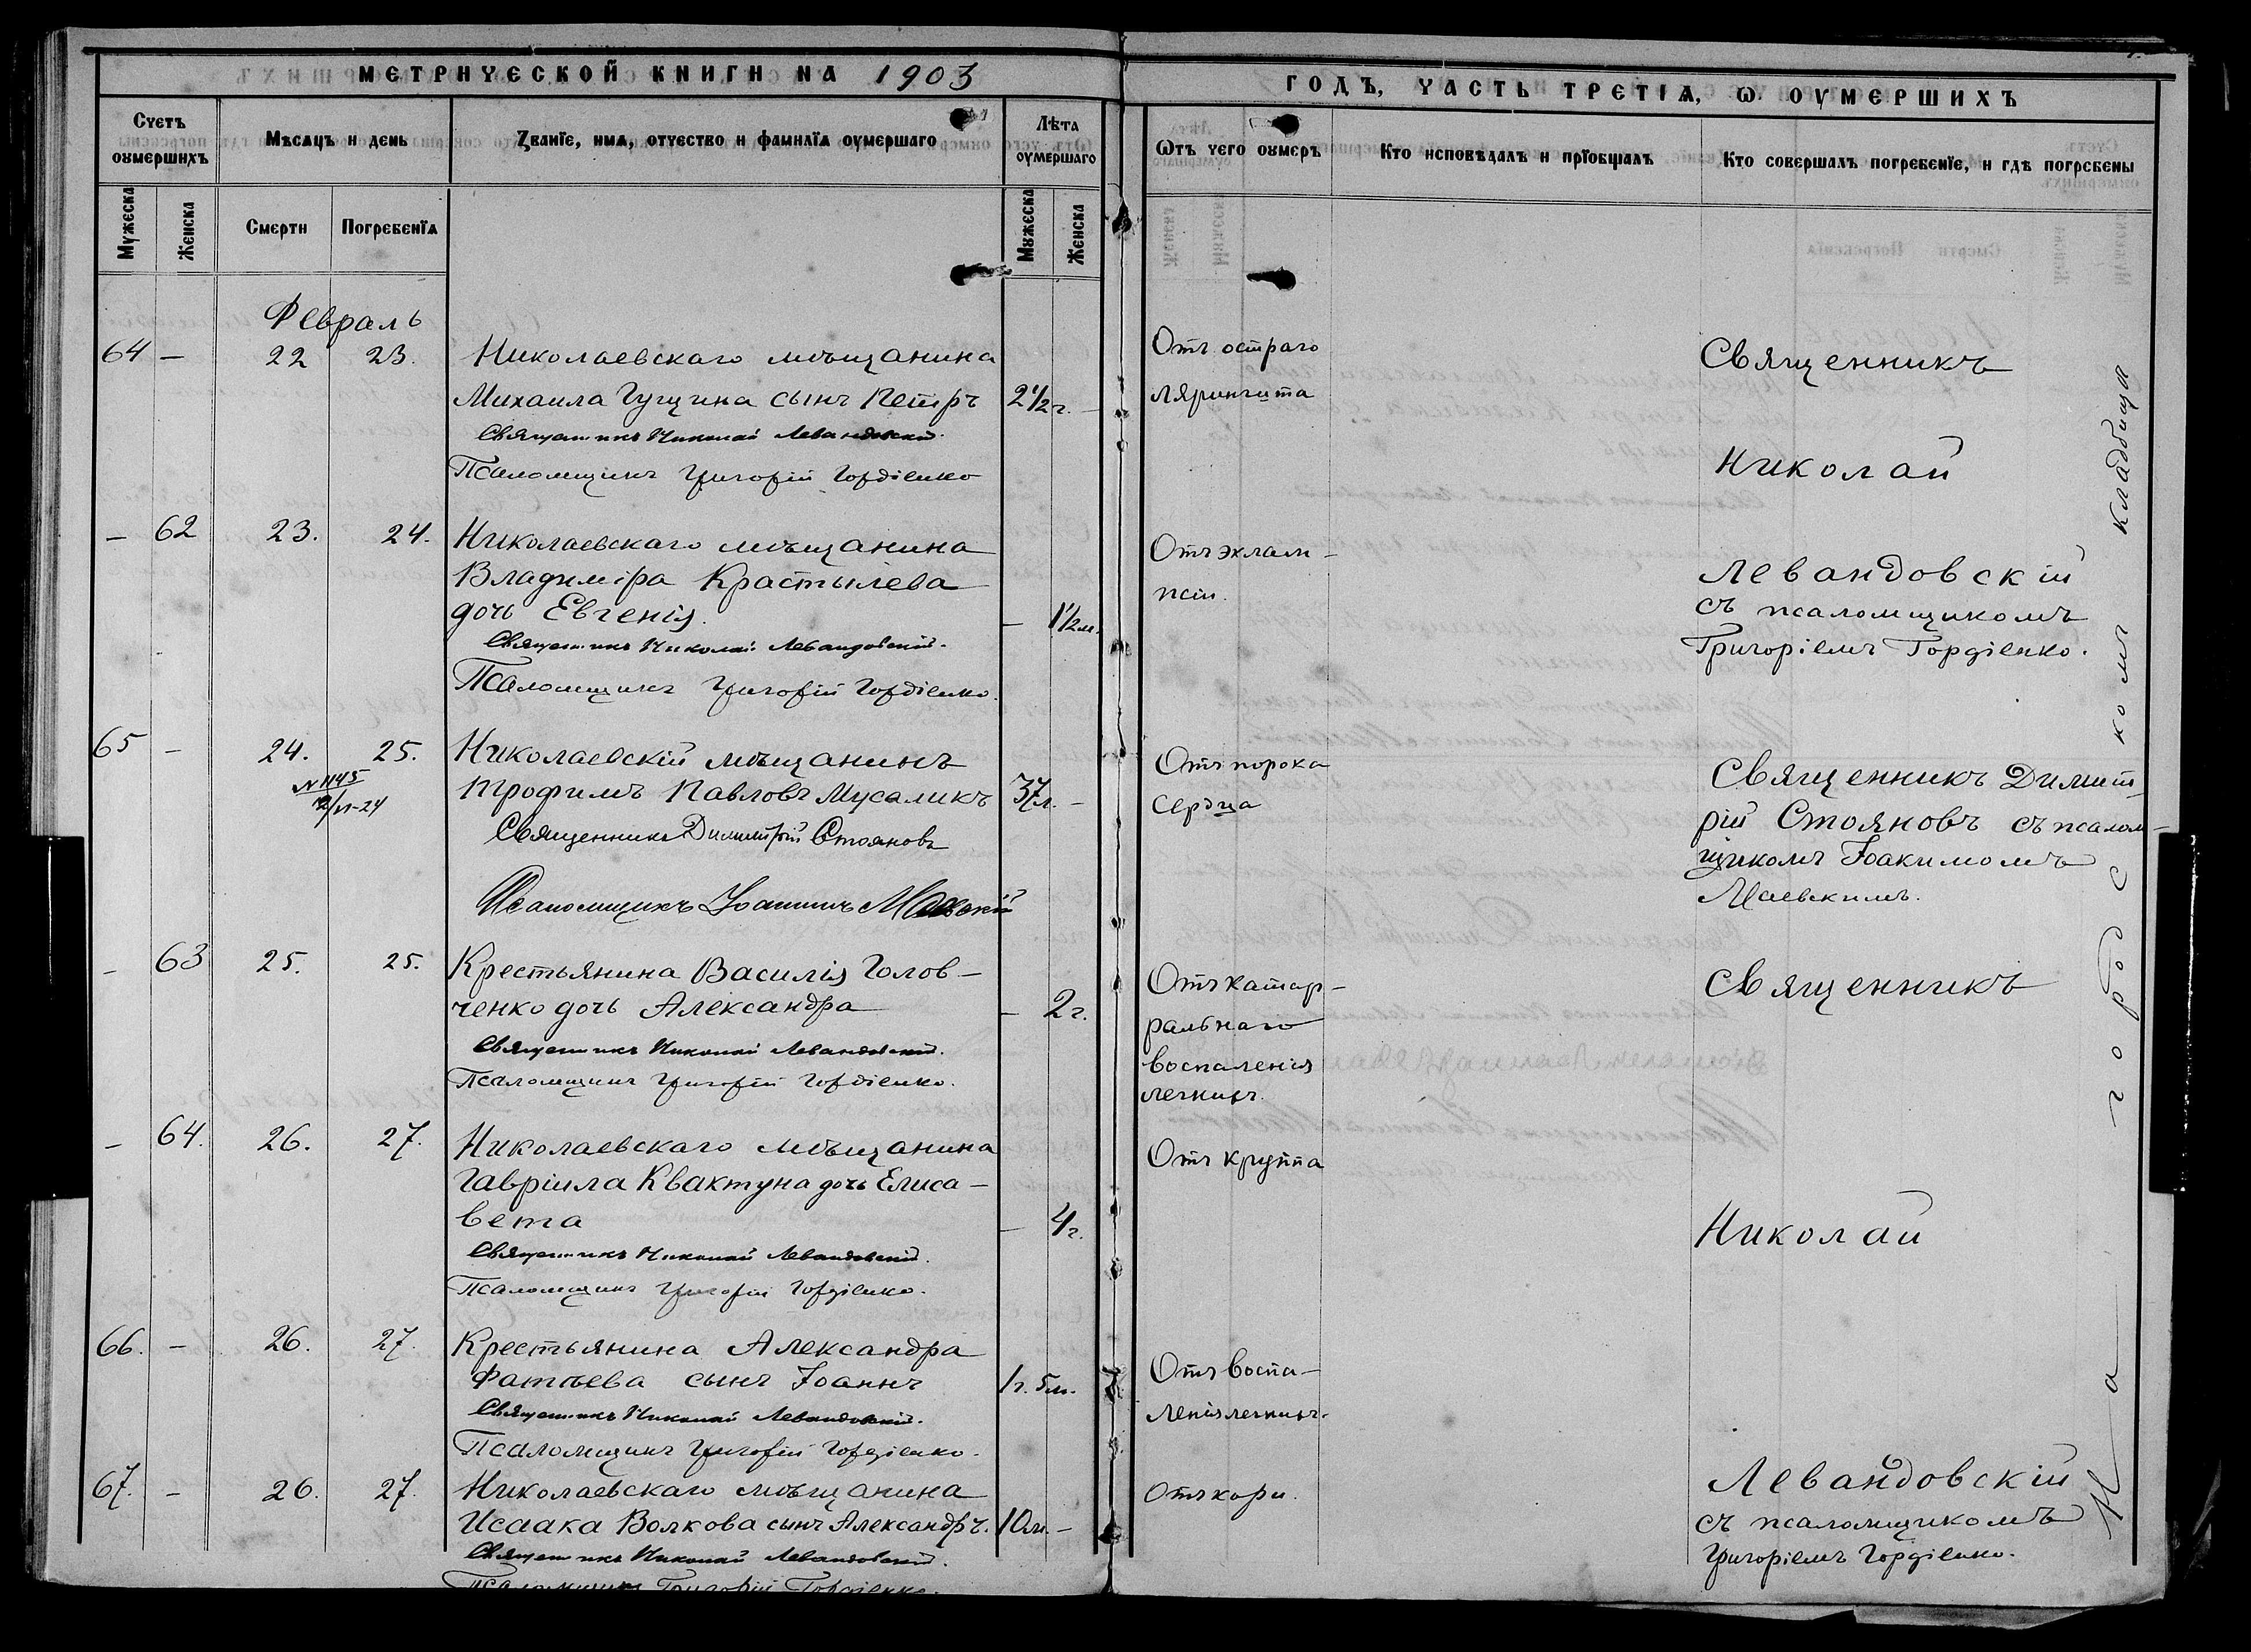 МЕТРИЧЕСКОЙ КНИГИ НА 1903
Счетъ оумершихъ
Мѣсяцъ и день
Званїе, имя, отчество и фамилїя оумершаго
Лѣта оумершаго
Мужеска
Женска
Смерти
Погребенїя
Мужеска
Женска
Февраль
64 — 22 23. Николаевскаго мѣщанина
Михаила Гущина сынъ Петръ 2½ г. —
Священникъ Николай Левандовскій.
Псаломщикъ Григорій Гордіенко
— 62 23. 24. Николаевскаго мѣщанина
Владиміра Крастылева
дочь Евгенія. — 1½ м.
Священникъ Николай Левандовскій.
Псаломщикъ Григорій Гордіенко.
65 — 24. 25. Николаевскій мѣщанинъ
№ 1145
Трофимъ Павловъ Мусаликъ 37 л. —
Священникъ Димитрій Стояновъ
Псаломщикъ Іоакимъ Маевскій
— 63 25. 25. Крестьянина Василія Голов-
ченко дочь Александра — 2 г.
Священникъ Николай Левандовскій.
Псаломщикъ Григорій Гордіенко.
— 64. 26. 27. Николаевскаго мѣщанина
Гавріила Квактуна дочь Елиса-
вета — 4 г.
Священникъ Николай Левандовскій.
Псаломщикъ Григорій Гордіенко.
66. — 26. 27. Крестьянина Александра
Фатѣева сынъ Іоаннъ 1 г. 5 м.
Священникъ Николай Левандовскій.
Псаломщикъ Григорій Гордіенко.
67. — 26. 27. Николаевскаго мѣщанина
Исаака Волкова сынъ Александръ. 10 м. —
Священникъ Николай Левандовскій.
Псаломщикъ Григорій Гордіенко.
ГОДЪ, ЧАСТЬ ТРЕТІЯ, Ѡ ОУМЕРШИХЪ
Ѿтъ чего оумеръ
Кто исповѣдалъ и прїобщалъ
Кто совершалъ погребенїе, и гдѣ погребены
Отъ остраго
лярингита
Отъ эклам-
псіи.
Отъ порока
сердца
Отъ катар-
ральнаго
воспаленія
легкихъ.
Отъ круппа
Отъ воспа-
ленія легкихъ.
Отъ кори.
Священникъ
Николай
Левандовскій
съ псаломщикомъ
Григоріемъ Гордіенко.
Священникъ Димит-
рій Стояновъ съ псалом-
щикомъ Іоакимомъ
Маевскимъ.
Священникъ
Николай
Левандовскій
съ псаломщикомъ
Григоріемъ Гордіенко.
На городскомъ кладбищѣ